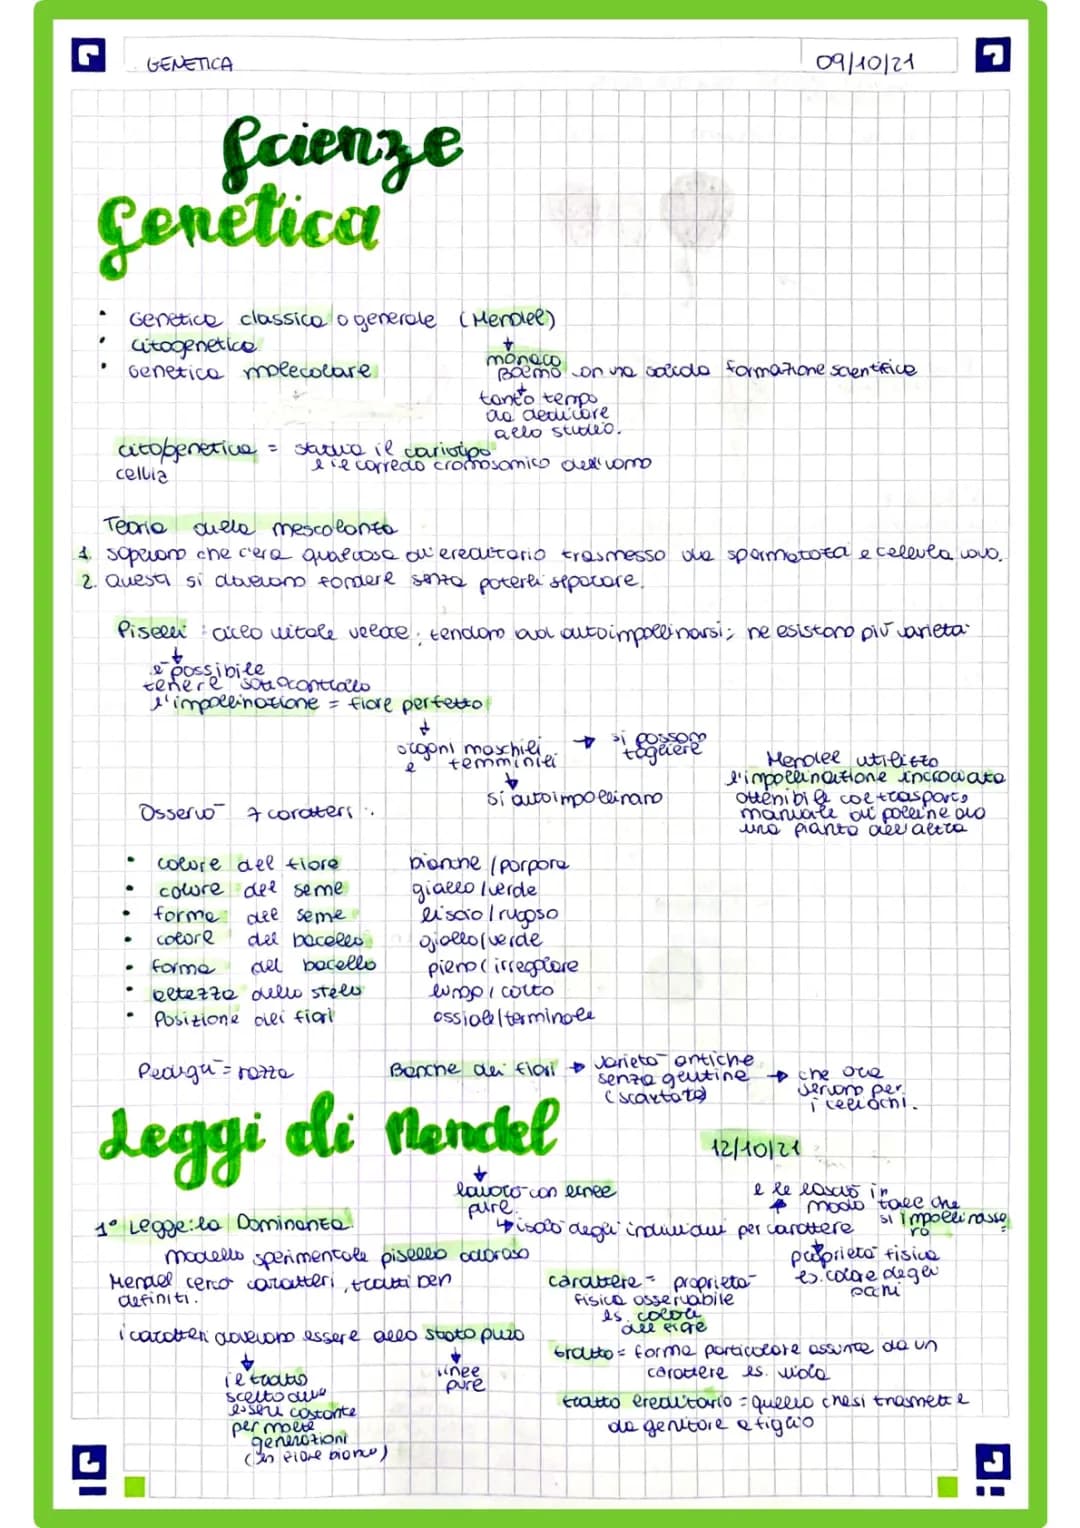 GENETICA
09/10/21
Scienze
Genetica
• Genetica classica o generale (Mendel)
• citogenetica
• Genetica molecolare
monaco
Boemo con una solida formazione scientifica
tanto tempo
da dedicare
allo studio.
citogenetica = studia il cariotipo
cellula
è il corredo cromosomico dell'uomo
Teoria della mescolanza
1. sapevano che c'era qualcosa di ereditario trasmesso da spermatozoi e cellula uovo.
2. Questi si dovevano fondere senza poterli separare.
Piselli: ciclo vitale veloce; tendono ad autoimpollinarsi; ne esistono più varietà
è possibile
tenere sotto controllo
l'impollinazione = fiore perfetto
organi maschili
e femminili
si possono
togliere
si autoimpollinano
Mendel utilizzò
l'impollinazione incrociata
ottenibile col trasporto
manuale di polline da
una pianta all'altra
Osservò 7 caratteri:
• colore del fiore bianche/porpora
• colore del seme giallo/verde
• forma del seme liscio/rugoso
• colore del bacello giallo/verde
• forma del bacello pieno/irregolare
• altezza dello stelo lungo/corto
• Posizione dei fiori assiale/terminale
= razza
Banche dei fiori
varietà antiche
senza glutine
(scartate)
che ora
servono per
i celiachi.
Leggi di Mendel
12/10/21
lavorò con linee
pure.
isolò degli individui per carattere
e le lasciò in
modo tale che
si impollinasse
ro
1° Legge: la Dominanza
modello sperimentale pisello odoroso
Mendel cercò caratteri, tratti ben
definiti.
i caratteri dovevano essere allo stato puro
il tratto
scelto deve
essere costante
per molte
generazioni
(es fiore bianco)
linee
pure
proprietà fisica
es. colore degli
carattere = proprietà
fisica osservabile
es. colore
del fiore
tratto = forma particolare assunta da un
carattere es. viola
tratto ereditario = quello che si trasmette
da genitore a figlio